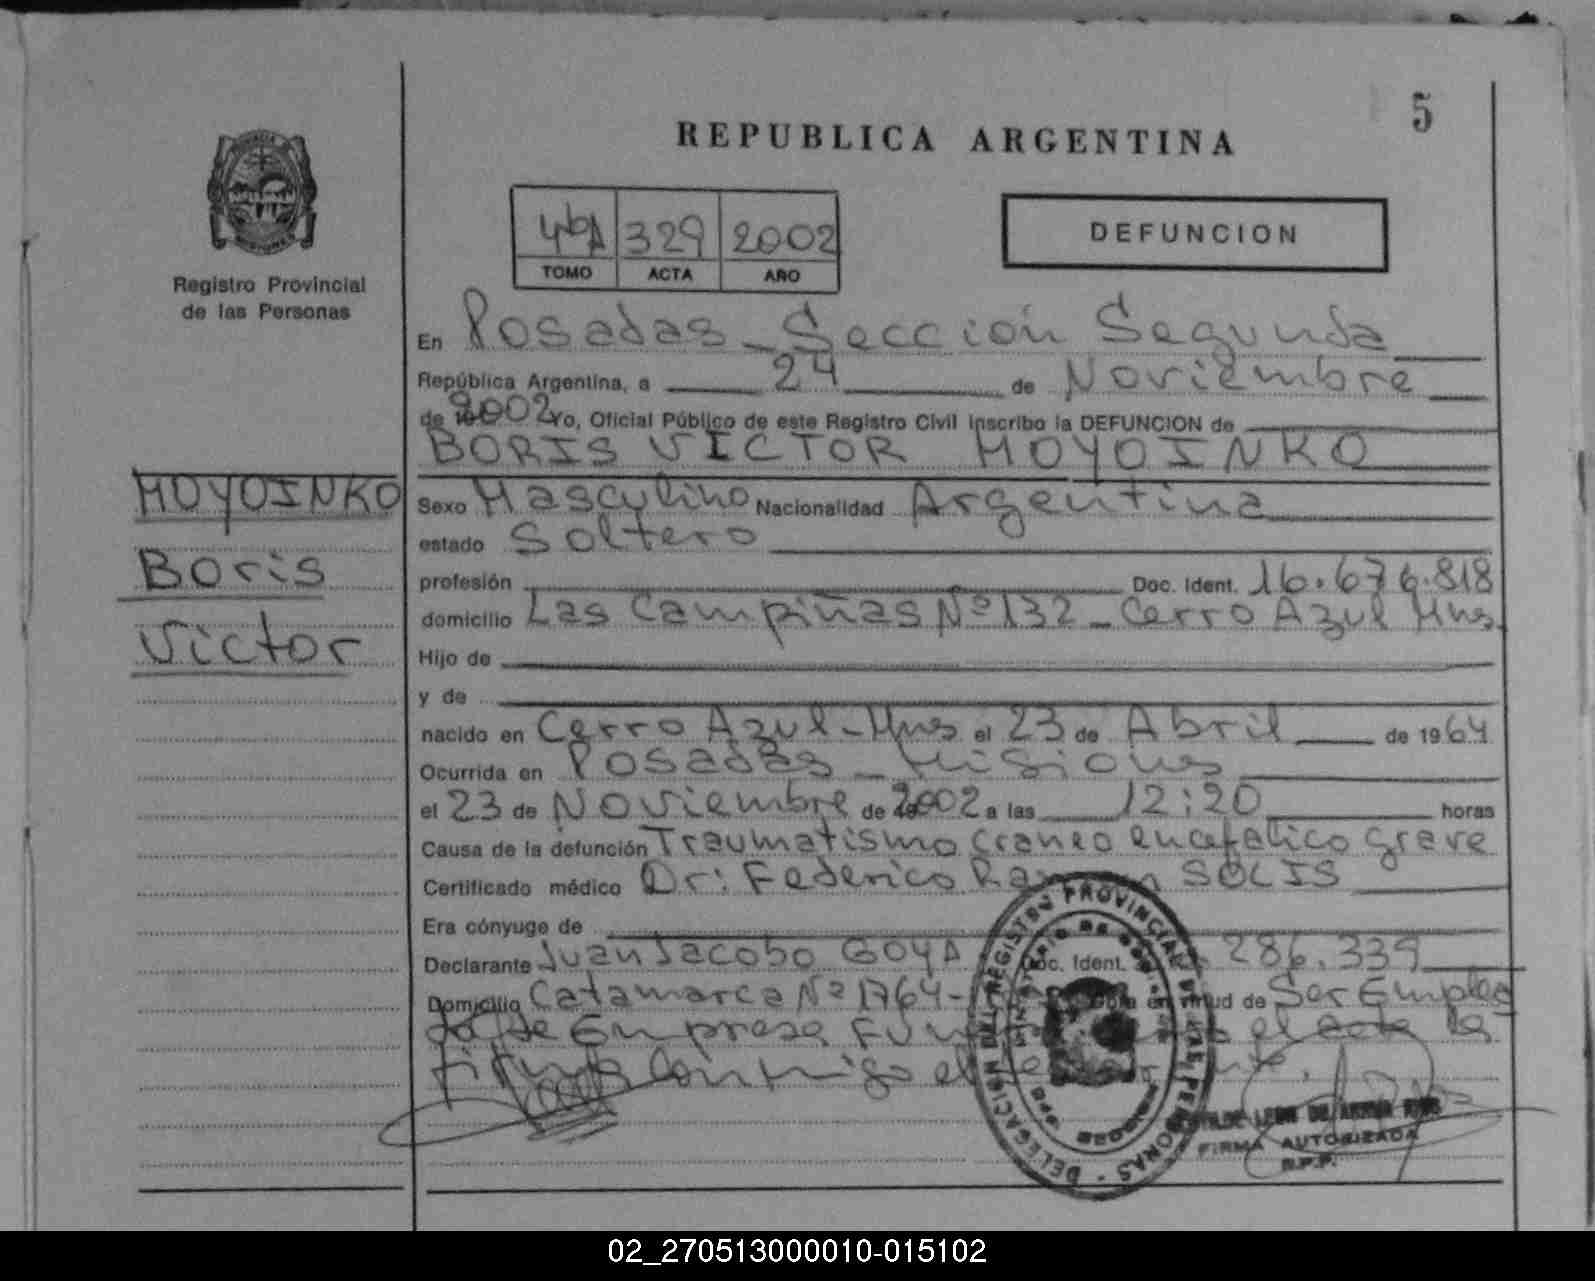 5
REPUBLICA ARGENTINA
Registro Provincial
de las Personas
329 2002
TOMO ACTA AÑO
DEFUNCION
En Posadas - Sección Segunda
República Argentina, a 24 de Noviembre
de 2002 Yo, Oficial Público de este Registro Civil inscribo la DEFUNCION de
BORIS VICTOR MOYOINKO
MOYOINKO
Boris
Victor
Sexo Masculino Nacionalidad Argentina
estado Soltero
profesión Doc. Ident. 16.676.818
domicilio Las Campiñas Nº 132 - Cerro Azul Mns.
Hijo de
y de
nacido en Cerro Azul - Mns el 23 de Abril de 1964
Ocurrida en Posadas - Misiones
el 23 de Noviembre de 2002 a las 12:20 horas
Causa de la defunción Traumatismo craneo encefalico grave
Certificado médico Dr: Federico SOLIS
Era cónyuge de
Declarante Juan Jacobo GOYA Doc. Ident. 286.339
Domicilio Catamarca Nº 1764 - en virtud de Ser Emplea
do de Empresa el acta la
firma conmigo el
DELEGACION DEL REGISTRO PROVINCIAL DE LAS PERSONAS
FIRMA AUTORIZADA
R.P.P.
02_270513000010-015102